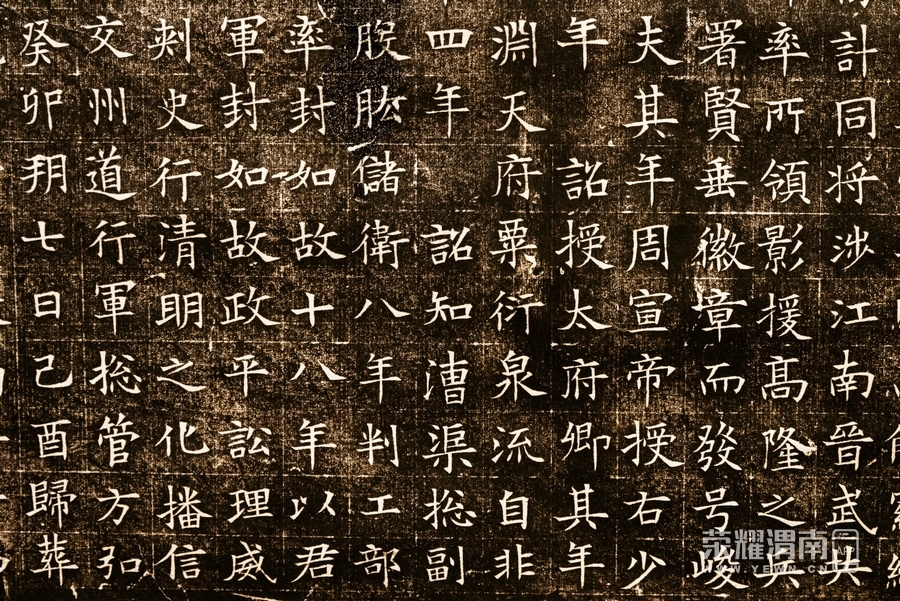 計同將涉江南晉武
率所領影援高隆之兵
署賢垂徽章而發号峻
夫其年周宣帝授右少
年 詔授太府卿其年
淵天府粟衍泉流自非
四年 詔知漕渠揔副
股肱儲衛八年判工部
率封如故十八年以君
軍封如故政平訟理威
刺史行清明之化播信
文州道行軍揔管方弘
癸卯朔七日己酉歸葬
荣耀渭南
APP
WWW.YEWN.CN